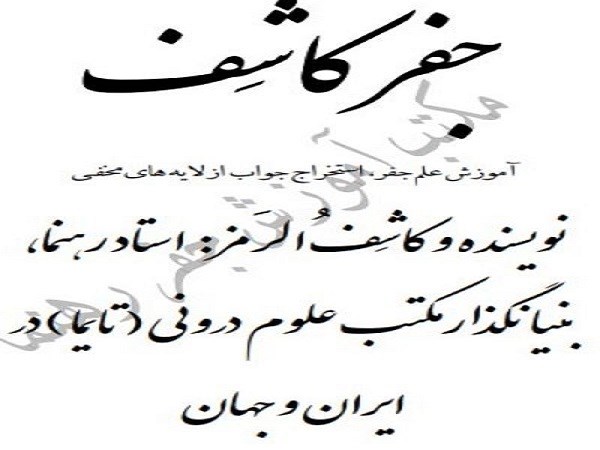 جفر کاشِف
آموزش علم جفر، استخراج جواب از لایه های مخفی
نویسنده و کاشِفُ الرَمز: استاد رهنما،
بنیانگذار مکتب علوم درونی (تایما) در
ایران و جهان
مکتب آموزش جفر رهنما